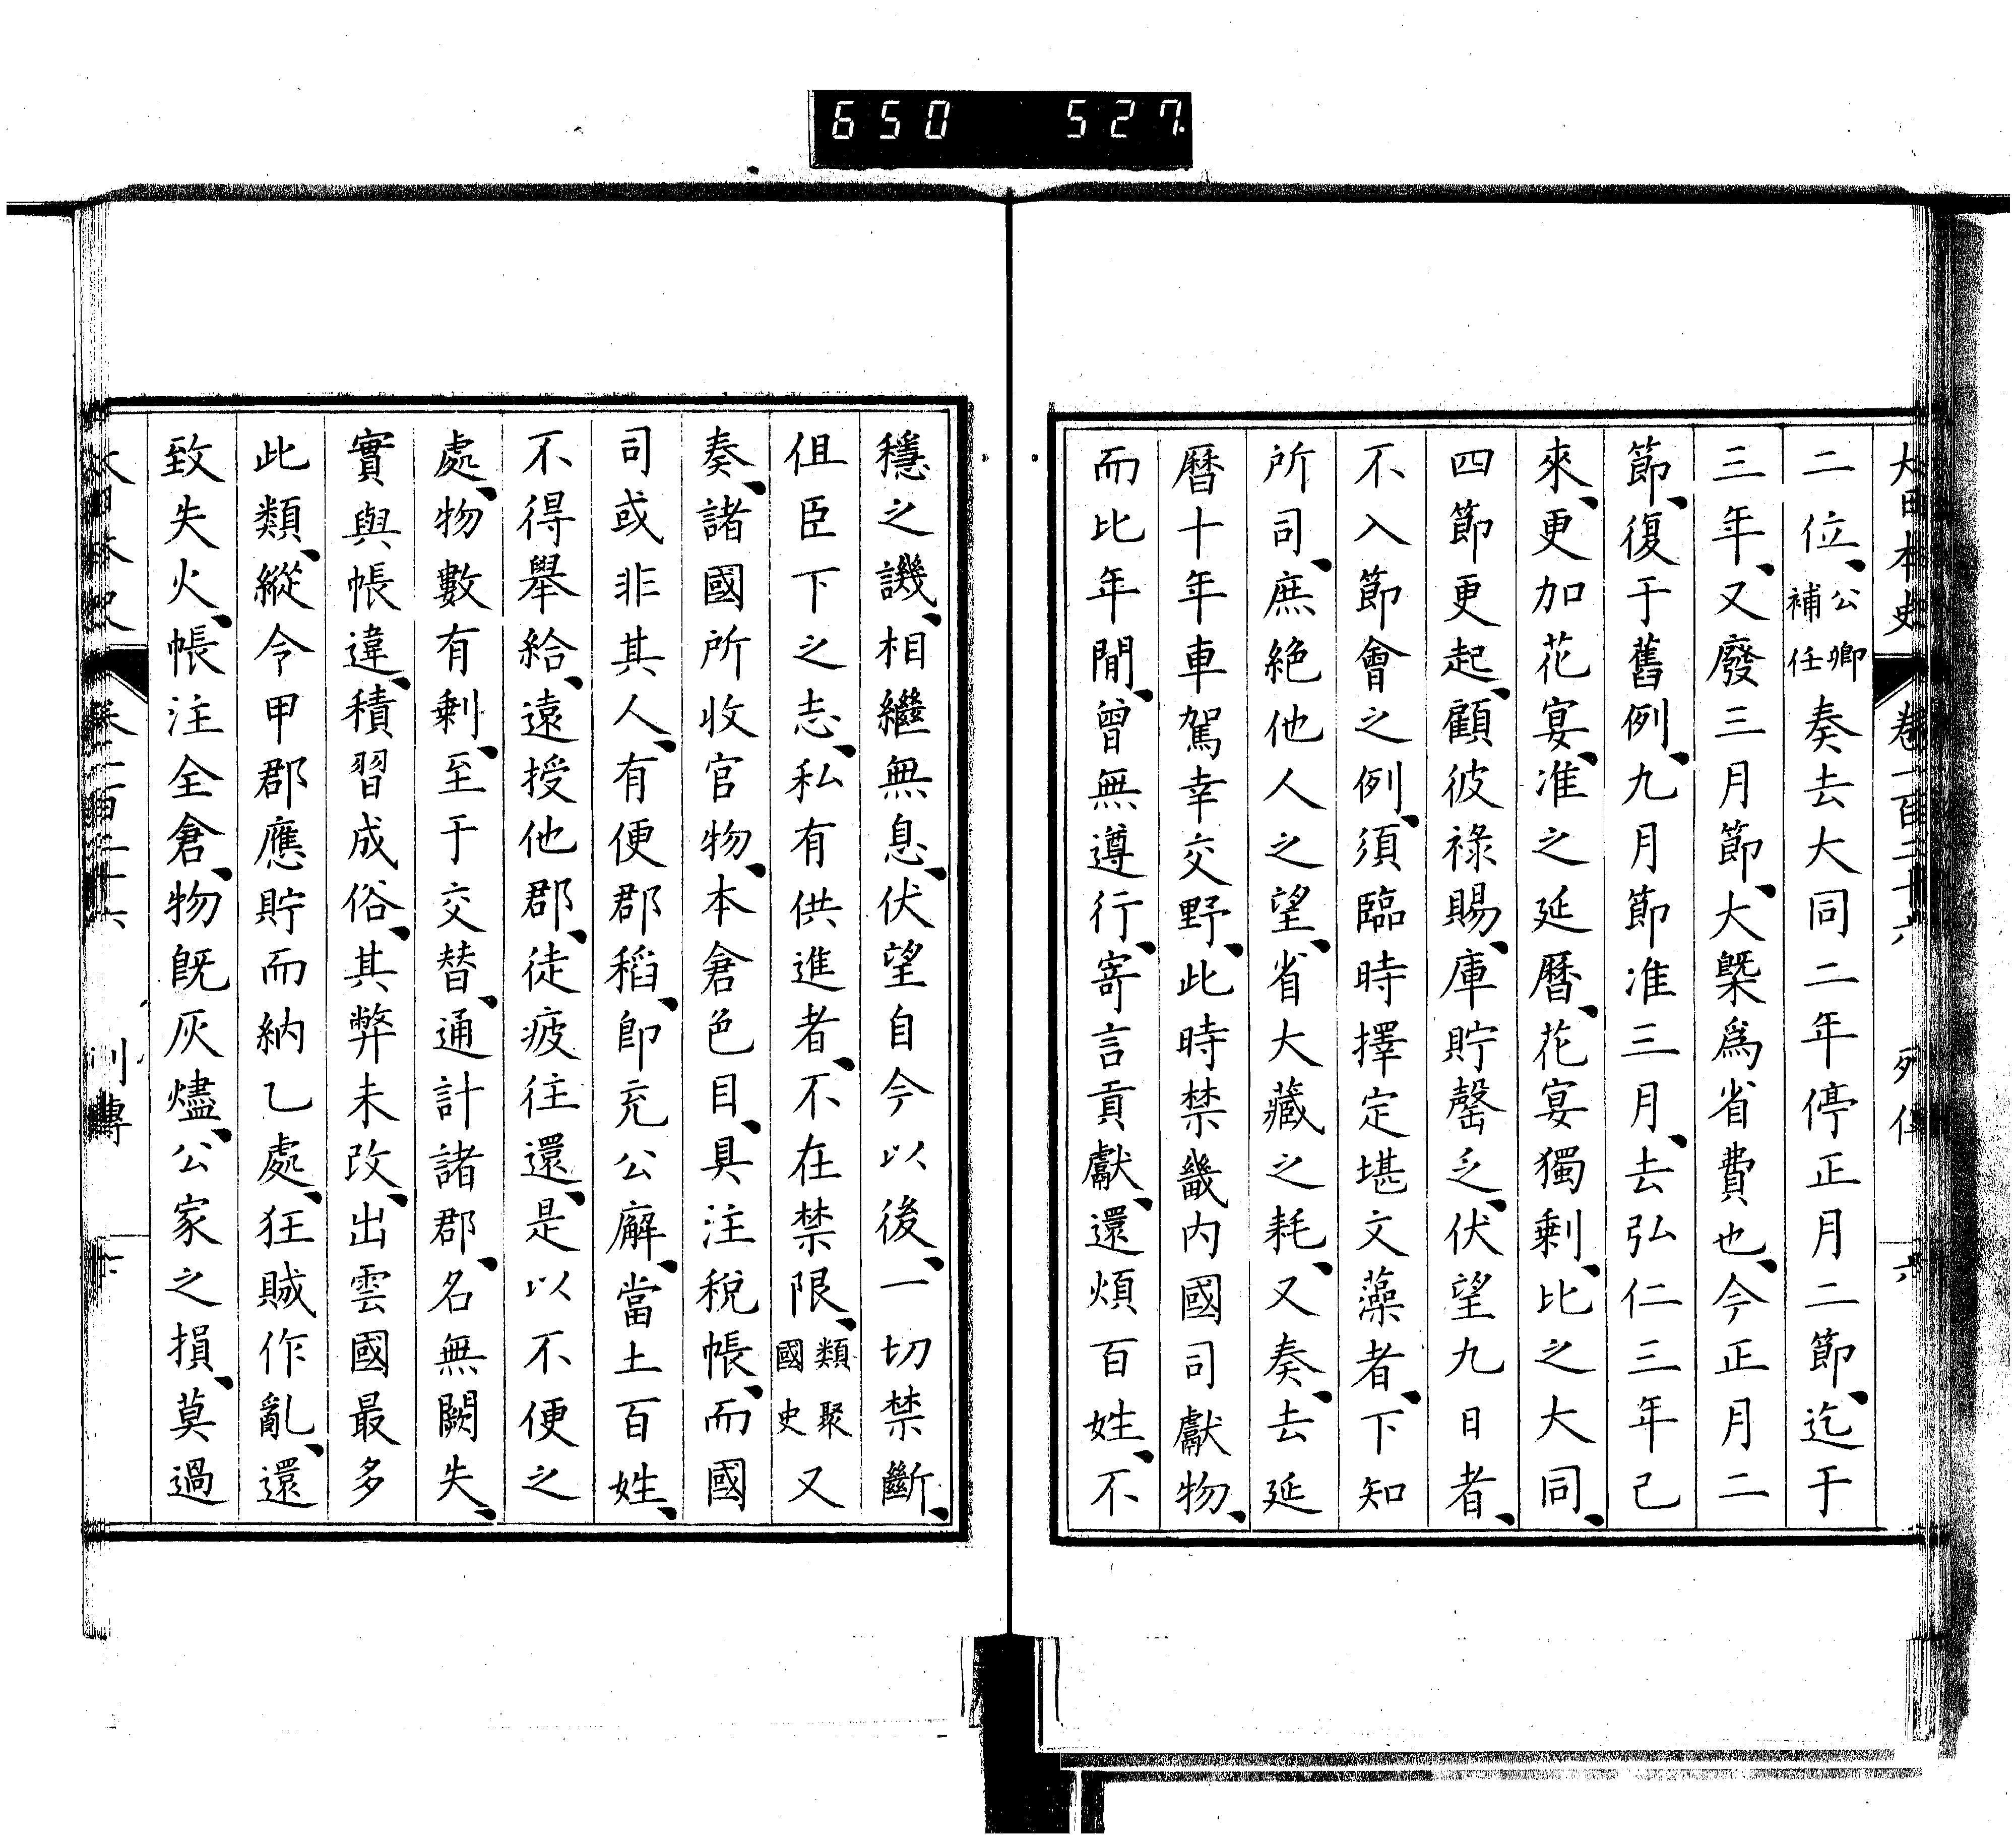 650 527
大日本史 卷一百二十六 列傳 六
二位、公卿補任奏去大同二年停正月二節、迄于
三年、又廢三月節、大槩爲省費也、今正月二
節、復于舊例、九月節准三月、去弘仁三年已
來、更加花宴、准之延曆、花宴獨剩、比之大同、
四節更起、顧彼祿賜、庫貯罄乏、伏望九日者、
不入節會之例、須臨時擇定堪文藻者、下知
所司、庶絶他人之望、省大藏之耗、又奏、去延
曆十年車駕幸交野、此時禁畿内國司獻物、
而比年間、曾無遵行、寄言貢獻、還煩百姓、不
穩之譏、相繼無息、伏望自今以後、一切禁斷、
但臣下之志、私有供進者、不在禁限、類聚國史又
奏、諸國所收官物、本倉色目、具注稅帳、而國
司或非其人、有便郡稻、卽充公廨、當土百姓、
不得舉給、遠授他郡、徒疲往還、是以不便之
處、物數有剩、至于交替、通計諸郡、名無闕失、
實與帳違、積習成俗、其弊未改、出雲國最多
此類、縱令甲郡應貯而納乙處、狂賊作亂、還
致失火、帳注全倉、物既灰燼、公家之損、莫過
卷一百二十六 列傳